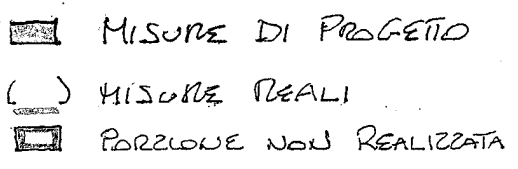 MISURE DI PROGETTO
( ) MISURE REALI
PORZIONE NON REALIZZATA